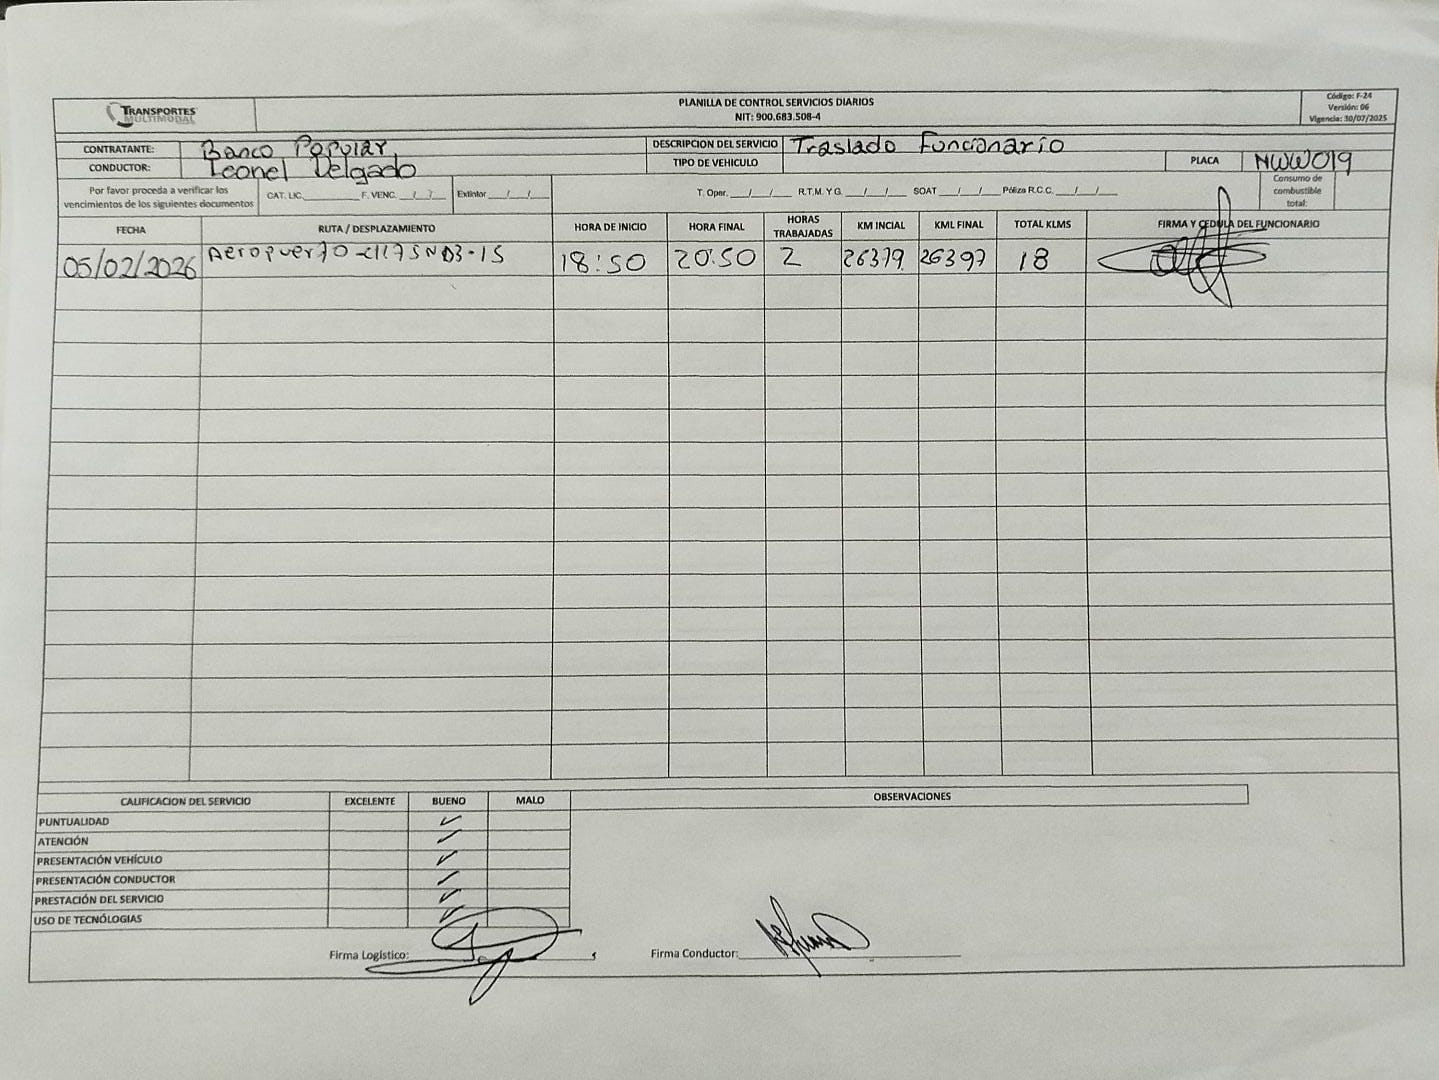 TRANSPORTES
MULTIMODAL
PLANILLA DE CONTROL SERVICIOS DIARIOS
NIT: 900.683.508-4
Código: F-24
Versión: 06
Vigencia: 30/07/2025
CONTRATANTE: Banco Popular
DESCRIPCION DEL SERVICIO Traslado Funcionario
CONDUCTOR: Leonel Delgado
TIPO DE VEHICULO
PLACA NWW019
Por favor proceda a verificar los
vencimientos de los siguientes documentos
CAT. LIC.________ F. VENC. ___/__/___ Extintor ___/___/___
T. Oper. ___/___/___ R.T.M. Y G. ___/___/___ SOAT ___/___/___ Póliza R.C.C. ___/___/___
Consumo de
combustible
total:
FECHA RUTA / DESPLAZAMIENTO HORA DE INICIO HORA FINAL HORAS TRABAJADAS KM INCIAL KML FINAL TOTAL KLMS FIRMA Y CEDULA DEL FUNCIONARIO
05/02/2026 Aeropuerto 18:50 20:50 2 26379 26397 18
CALIFICACION DEL SERVICIO EXCELENTE BUENO MALO OBSERVACIONES
PUNTUALIDAD ✓
ATENCIÓN ✓
PRESENTACIÓN VEHÍCULO ✓
PRESENTACIÓN CONDUCTOR ✓
PRESTACIÓN DEL SERVICIO ✓
USO DE TECNÓLOGIAS ✓
Firma Logístico:
Firma Conductor: